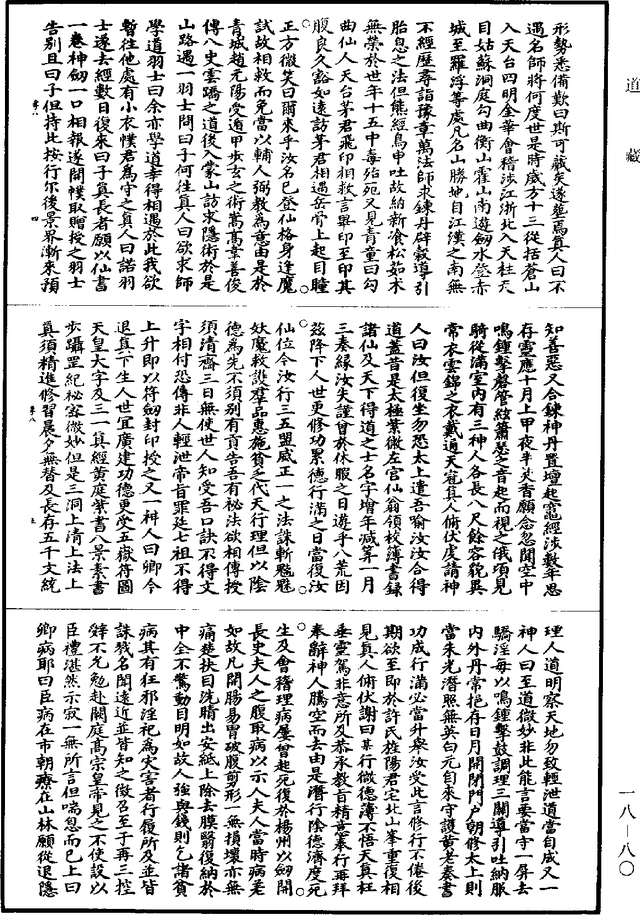 道藏
形勢悉備歎曰斯可藏矣遂塟焉真人曰不
遇名師將何度世是時歲方十三從括蒼山
入天台四明金華會稽涉江浙北入天柱天
目姑蘇洞庭勾曲衡山霍山南遊劒水登赤
城至羅浮等處凡名山勝地自江漢之南無
不經歷尋詣豫章萬法師求鍊丹辟穀導引
胎息之法但熊經鳥申吐故納新飡松茹术
無榮於世年十五中毒殆死又見青童曰勾
曲仙人天台茅君飛印相救言畢印至印其
腹良久豁如遠訪茅君相遇岳骨上起目瞳
正方微笑曰爾來乎汝名已登仙格身逢魔
試故相救而免當以輔人弼教為意由是於
青城趙元陽受遁甲步玄之術嵩高韋善俊
傳八史雲蹻之道後入蒙山訪求隱術於是
山路遇一羽士問曰子何往真人曰欲求師
學道羽士曰余亦學道幸得相遇於此我欲
暫往他處有小衣幞君為守之真人曰諾羽
士遂去經數日復來曰子真長者願以仙書
一卷神劒一口相報遂開幞取贈授之羽士
告別且曰子但持此按行尓後景界漸來預
孝八 四
知善惡又合鍊神丹置壇起竈經涉數年思
存靈應十月上甲夜半炎香願念忽聞空中
鳴鍾擊磬管絃簫瑟之音起而視之俄頃見
騎從滿室內有三神人各長八尺餘容貌異
常衣雲錦之衣戴通天冠真人俯伏虔請神
人曰汝但復坐勿恐太上遣吾喻汝汝合得
道蓋昔是太極紫微左宮仙翁領校簿書錄
諸仙及天下得道之士名字增年減筭一月
三奏緣汝失謹曾於休服之日遊乎八荒因
茲降下人世更修功累德行滿之日當復汝
仙位今汝行三五盟威正一之法誅斬魑魅
妖魔救護羣品惠施貧乏代天行理但以陰
德為先不須別有貢告吾有秘法欲相傳授
須清齋三日無使世人知受吾口訣不得文
字相付恐傳非人輕泄帝旨罪延七祖不得
上升即以符劒封印授之又一神人曰卿今
退真下生人世宜廣建功德更受五嶽符圖
天皇大字及三一真經黃庭紫書八景素書
步躡罡紀祕密微妙但是三洞上清上法上
真須精進修習晨夕無替及長存五千文統
孝八 五
理人道明察天地勿致輕泄道當自成又一
神人曰至道微妙非此能言要當守一屏去
驕淫每以鳴鍾擊鼓調理三關導引吐納服
內外丹常挹存日月開閉門戶朝修太上則
當朱光潛照無英白元自來守護黃老奏書
功成行滿必當升舉汝受此言修行不倦後
期欲至即於許氏旌陽君宅北山峯重復相
見真人俯伏謝曰某行微德薄不悟天真枉
垂靈駕非意所及恭承教旨精意奉行再拜
奉辭神人騰空而去由是潛行陰德濟度死
生及會稽理病屢曾起死復於楊州以劒開
長史夫人之腹取病以示人夫人當時病差
如故凡開腸易胃破腹剪形一無損壞亦無
痛楚抉目洗睛出安紙上除去膜翳復納於
中全不驚動目明如故人強與錢則乞諸貧
病其有狂邪淫祀為灾害者行履所及並皆
誅戮名聞遠近並皆知之徵召至于再三控
辭不免勉赴闕庭高宗皇帝見之不使設以
臣禮湛然示寂一無所言但喘息而已上曰
卿病耶曰臣病在市朝療在山林願從退隱
一八-八〇